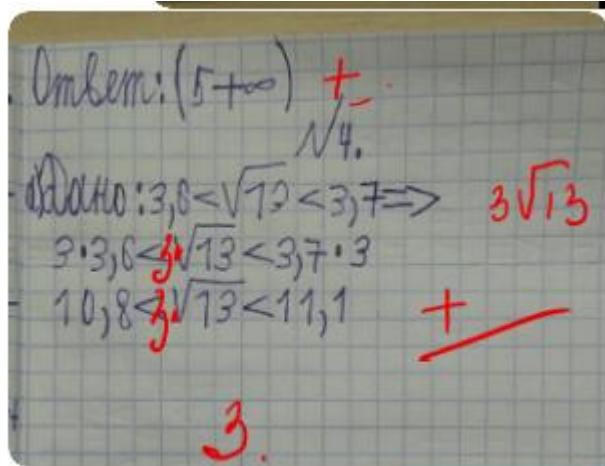 Ответ: (5 +∞) +.
№4.
а) Дано: 3,6<√13<3,7=> 3√13
3·3,6<3·√13<3,7·3
10,8<3·√13<11,1 +
3.